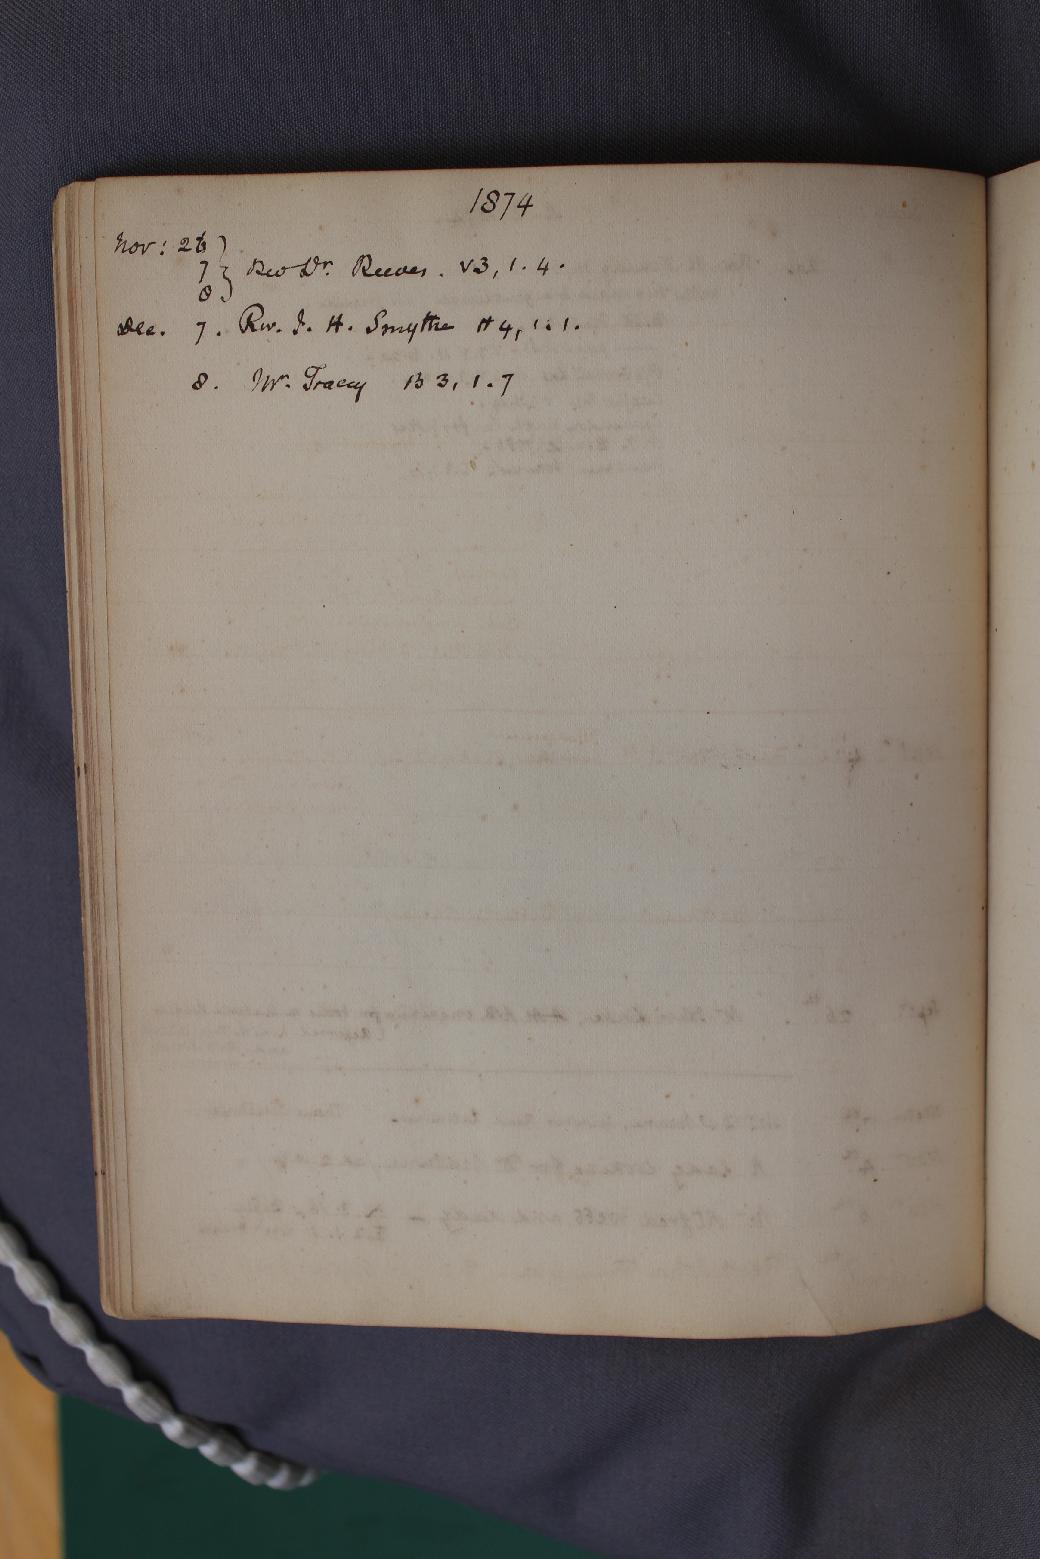 1874
Nov: 26
7 Rev Dr. Reeves. V3, 1. 4.
8
Dec. 7. Rev. J. H. Smythe H4, 1. 1.
8. Mr. Tracey B 3, 1. 7